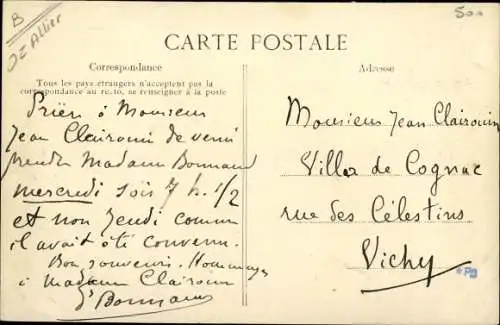 B
03 Allier
500
CARTE POSTALE
Correspondance
Tous les pays étrangers n'acceptent pas la
correspondance au recto, se renseigner à la poste
Prière à Monsieur
Jean Clairouin de venir
prendre Madame Bonnaud
mercredi soir 7 h. 1/2
et non jeudi comme
il avait été convenu.
Bon souvenir. Hommages
à Madame Clairouin
Bonnaud
Adresse
Monsieur Jean Clairouin
Villa de Cognac
rue des Célestins
Vichy